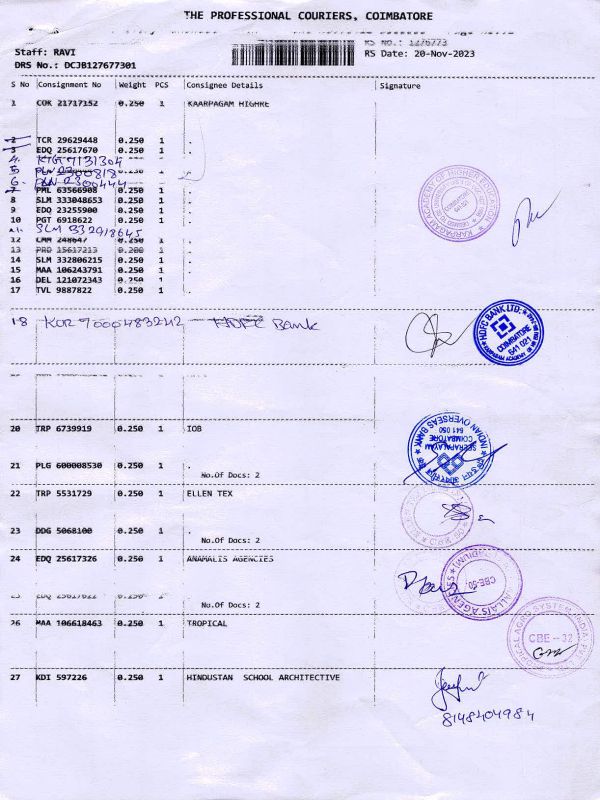 THE PROFESSIONAL COURIERS, COIMBATORE
RS NO.: 1276773
Staff: RAVI
RS Date: 20-Nov-2023
DRS No.: DCJB127677301
S No Consignment No Weight PCS Consignee Details Signature
1 COK 21717152 0.250 1 KAARPAGAM HIGHRE
2 TCR 29629448 0.250 1 .
3 EDQ 25617670 0.250 1 .
4. KTG 9131304
5
6.
7 PML 63566908 0.250 1 .
8 SLM 333048653 0.250 1 .
9 EDQ 23255900 0.250 1 .
10 PGT 6918622 0.250 1 .
11. SLM 332918645
12 248647 0.250 1 .
13 PRD 15617213 0.200 1 .
14 SLM 332806215 0.250 1 .
15 MAA 106243791 0.250 1 .
16 DEL 121072343 0.250 1 .
17 TVL 9887822 0.250 1 .
KARPAGAM ACADEMY OF HIGHER EDUCATION
COIMBATORE
641 021
18 KOR 7000483242 HDFC Bank
HDFC BANK LTD.
COIMBATORE
641 021
20 TRP 6739919 0.250 1 IOB
INDIAN OVERSEAS BANK
SEERAPALAYAM
COIMBATORE
641 050
21 PLG 600008530 0.250 1 .
No.Of Docs: 2
22 TRP 5531729 0.250 1 ELLEN TEX
23 DDG 5068100 0.250 1 .
No.Of Docs: 2
24 EDQ 25617326 0.250 1 ANAMALIS AGENCIES
CBE-50
25 EDQ 25617622 0.250 1 .
No.Of Docs: 2
26 MAA 106618463 0.250 1 TROPICAL
TROPICAL AGRO SYSTEM INDIA
CBE - 32
27 KDI 597226 0.250 1 HINDUSTAN SCHOOL ARCHITECTIVE
8148404984